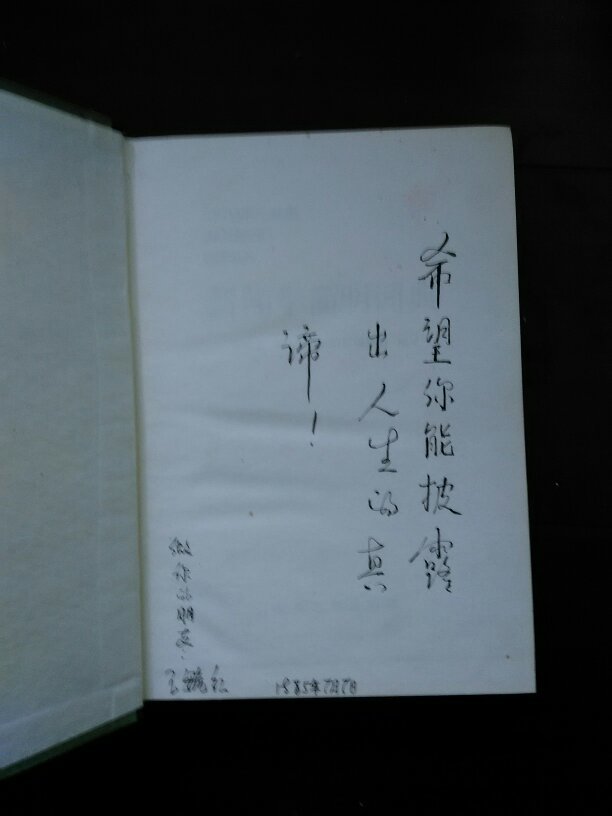 希望你能披露
出人生的真
谛！
做你的朋友：
王毓红
1985年7月7日